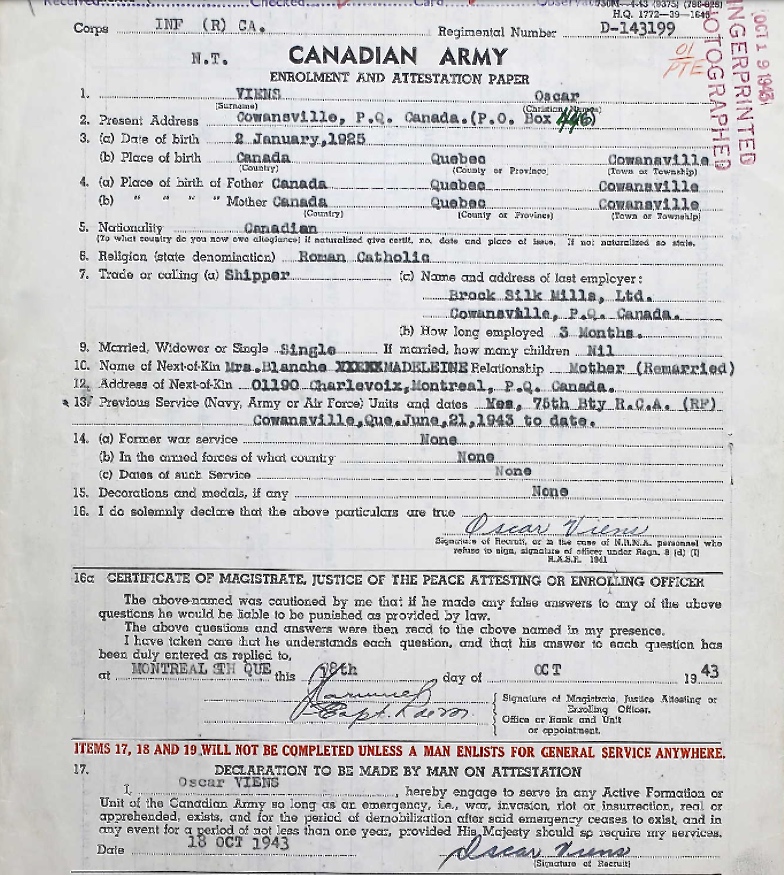 Received Checked Card Observat
730M—4-43 (9375) (780-828)
H.Q. 1772—39—1645
Corps INF (R) CA. Regimental Number D-143199
N.T. CANADIAN ARMY 01 PTE
OCT 19 1943
FINGERPRINTED
PHOTOGRAPHED
ENROLMENT AND ATTESTATION PAPER
1. VIENS Oscar
(Surname) (Christian Names)
2. Present Address Cowansville, P.Q. Canada.(P.O. Box 446)
3. (a) Date of birth 2 January,1925
(b) Place of birth Canada Quebec Cowansville
(Country) (County or Province) (Town or Township)
4. (a) Place of birth of Father Canada Quebec Cowansville
(b) " " " " Mother Canada Quebec Cowansville
(Country) (County or Province) (Town or Township)
5. Nationality Canadian
(To what country do you now owe allegiance; if naturalized give certif. no. date and place of issue. If not naturalized so state.
6. Religion (state denomination) Roman Catholic
7. Trade or calling (a) Shipper (c) Name and address of last employer:
Brock Silk Mills, Ltd.
Cowansville, P.Q. Canada.
(b) How long employed 3 Months.
9. Married, Widower or Single Single If married, how many children Nil
10. Name of Next-of-Kin Mrs.Blanche XXXXXMADELEINE Relationship Mother (Remarried)
12. Address of Next-of-Kin 01190 Charlevoix,Montreal, P.Q. Canada.
13. Previous Service (Navy, Army or Air Force) Units and dates Yes, 75th Bty R.C.A. (RF)
Cowansville,Que.June,21,1943 to date.
14. (a) Former war service None
(b) In the armed forces of what country None
(c) Dates of such Service None
15. Decorations and medals, if any None
16. I do solemnly declare that the above particulars are true
Oscar Viens
Signature of Recruit, or in the case of N.R.M.A. personnel who
refuse to sign, signature of officer under Regn. 8 (d) (1)
1941
16a CERTIFICATE OF MAGISTRATE, JUSTICE OF THE PEACE ATTESTING OR ENROLLING OFFICER
The above-named was cautioned by me that if he made any false answers to any of the above
questions he would be liable to be punished as provided by law.
The above questions and answers were then read to the above named in my presence.
I have taken care that he understands each question, and that his answer to each question has
been duly entered as replied to,
at MONTREAL STH QUE this 18th day of OCT 19 43
Capt.
Signature of Magistrate, Justice Attesting or
Enrolling Officer.
Office or Rank and Unit
or appointment.
ITEMS 17, 18 AND 19 WILL NOT BE COMPLETED UNLESS A MAN ENLISTS FOR GENERAL SERVICE ANYWHERE.
17. DECLARATION TO BE MADE BY MAN ON ATTESTATION
I, Oscar VIENS, hereby engage to serve in any Active Formation or
Unit of the Canadian Army so long as an emergency, i.e., war, invasion, riot or insurrection, real or
apprehended, exists, and for the period of demobilization after said emergency ceases to exist, and in
any event for a period of not less than one year, provided His Majesty should so require my services.
Date 18 OCT 1943 Oscar Viens
(Signature of Recruit)